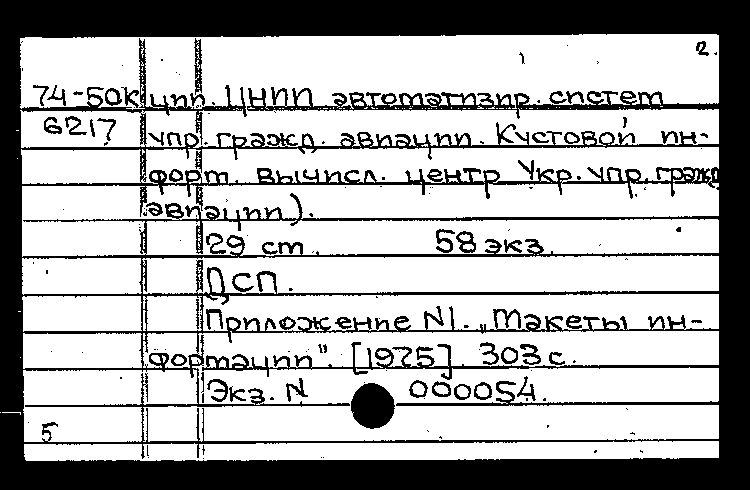 2.
74-50к ции. ЦНИИ автоматизир. систем
6217 упр. гражд. авиации. Кустовой ин-
форм. вычисл. центр Укр. упр. гражд
авиации).
29 см. 58 экз.
ДСП.
Приложение N1. „Макеты ин-
формации". [1975]. 303 с.
Экз. N 000054.
5